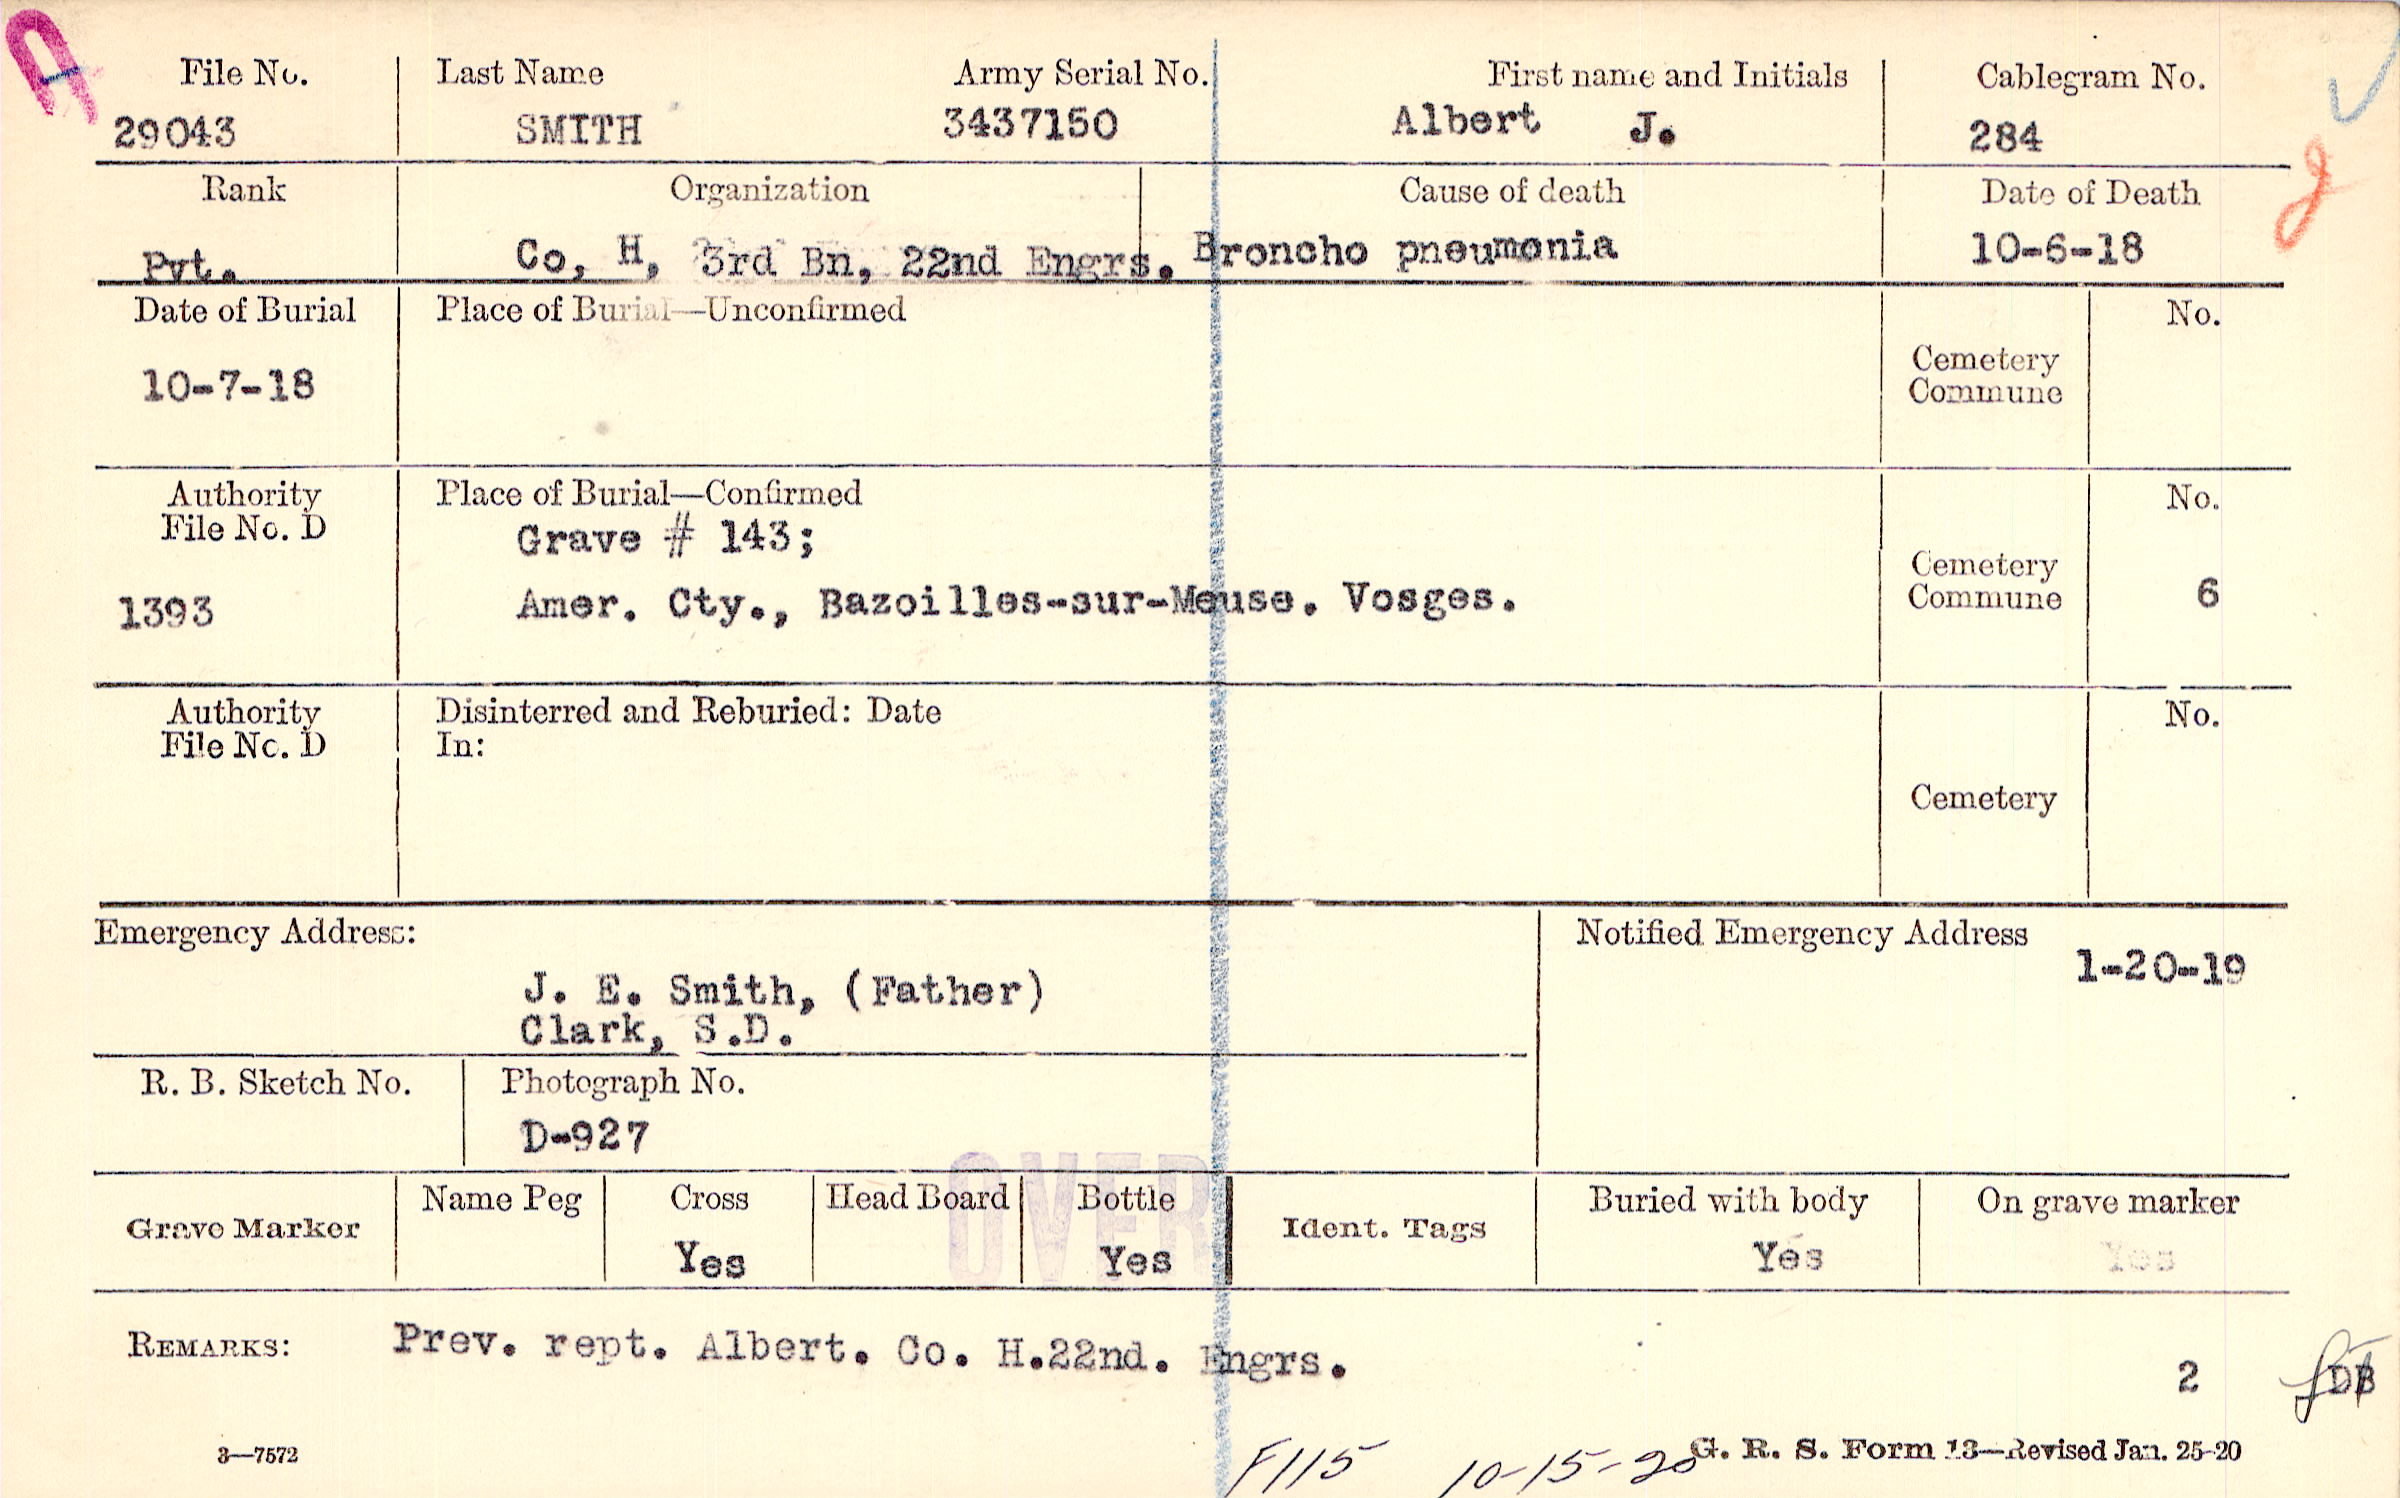 A
File No. Last Name Army Serial No. First name and Initials Cablegram No.
29043 SMITH 3437150 Albert J. 284
Rank Organization Cause of death Date of Death
Pvt. Co, H, 3rd Bn, 22nd Engrs. Broncho pneumonia 10-6-18
Date of Burial Place of Burial—Unconfirmed No.
Cemetery
Commune
10-7-18
Authority Place of Burial—Confirmed No.
File No. D
Grave # 143;
Cemetery
Commune
1393 Amer. Cty., Bazoilles-sur-Meuse. Vosges. 6
Authority Disinterred and Reburied: Date No.
File No. D In:
Cemetery
Emergency Address: Notified Emergency Address
1-20-19
J. E. Smith, (Father)
Clark, S.D.
R. B. Sketch No. Photograph No.
D-927
OVER
Grave Marker Name Peg Cross Head Board Bottle Ident. Tags Buried with body On grave marker
Yes Yes Yes Yes
REMARKS: Prev. rept. Albert. Co. H.22nd. Engrs.
2
3—7572 F115 10-15-20 G. R. S. Form 13—Revised Jan. 25-20